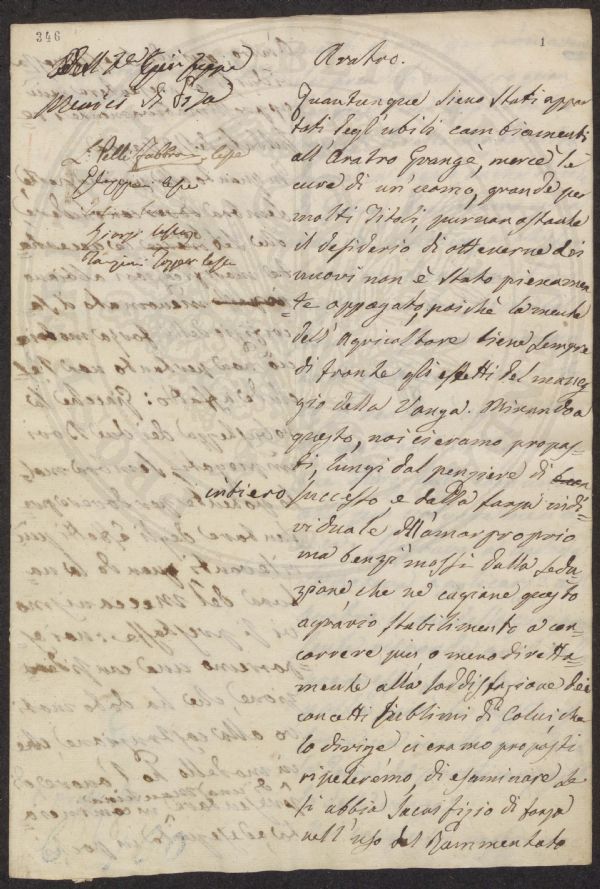 346
1
Dell Dr Giuseppe
Menici di Pisa
L. Pelli Fabbroni lesse
lesse
lesse
lesse
Aratro.
Quantunque sieno stati appor
tati degl'utili cambiamenti
all'Aratro Grangè, mercè le
cure di un'uomo, grande per
molti Titoli, purnonostante
il desiderio di ottenerne dei
nuovi non è stato pienamen
te appagato, poichè la mente
dell'Agricoltore tiene sempre
di fronte gli effetti del maneg
gio della Vanga. Mirando a
questo, noi ci eramo propos-
ti, lungi dal pensiere di
intiero
successo e dalla forza indi-
viduale dell'amor proprio
ma benzì mossi dalla sedu-
zione che ne cagiona questo
agrario stabilimento a con-
correre più o meno diretta-
mente alla soddisfazione dei
concetti sublimi di Colui che
lo dirige ci eramo proposti
ripeteremo di esaminare se
si abbia sacrifizio di forza
nell'uso del Rammentato